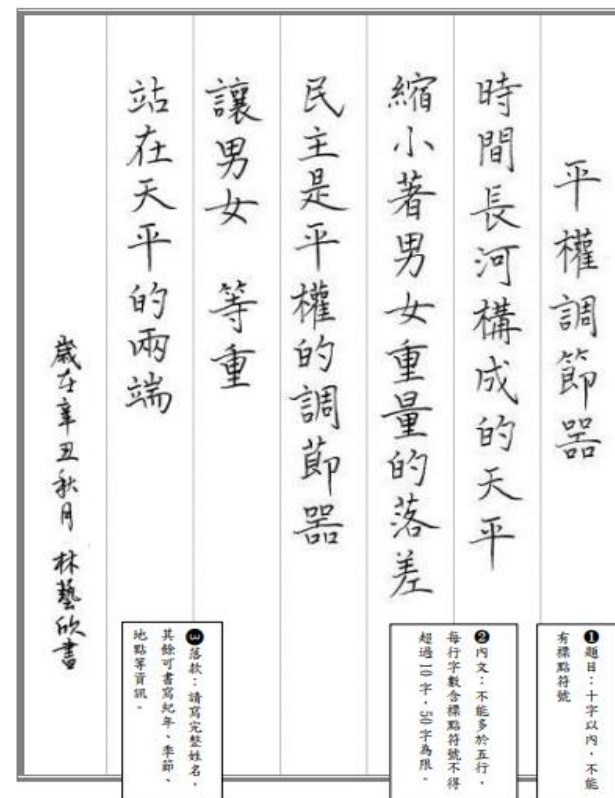 平權調節器
時間長河構成的天平
縮小著男女重量的落差
民主是平權的調節器
讓男女 等重
站在天平的兩端
歲在辛丑秋月 林藝欣書
❶題目：十字以內，不能
有標點符號
❷內文：不能多於五行，
每行字數含標點符號不得
超過10字，50字為限。
❸落款：請寫完整姓名，
其餘可書寫紀年、季節、
地點等資訊。